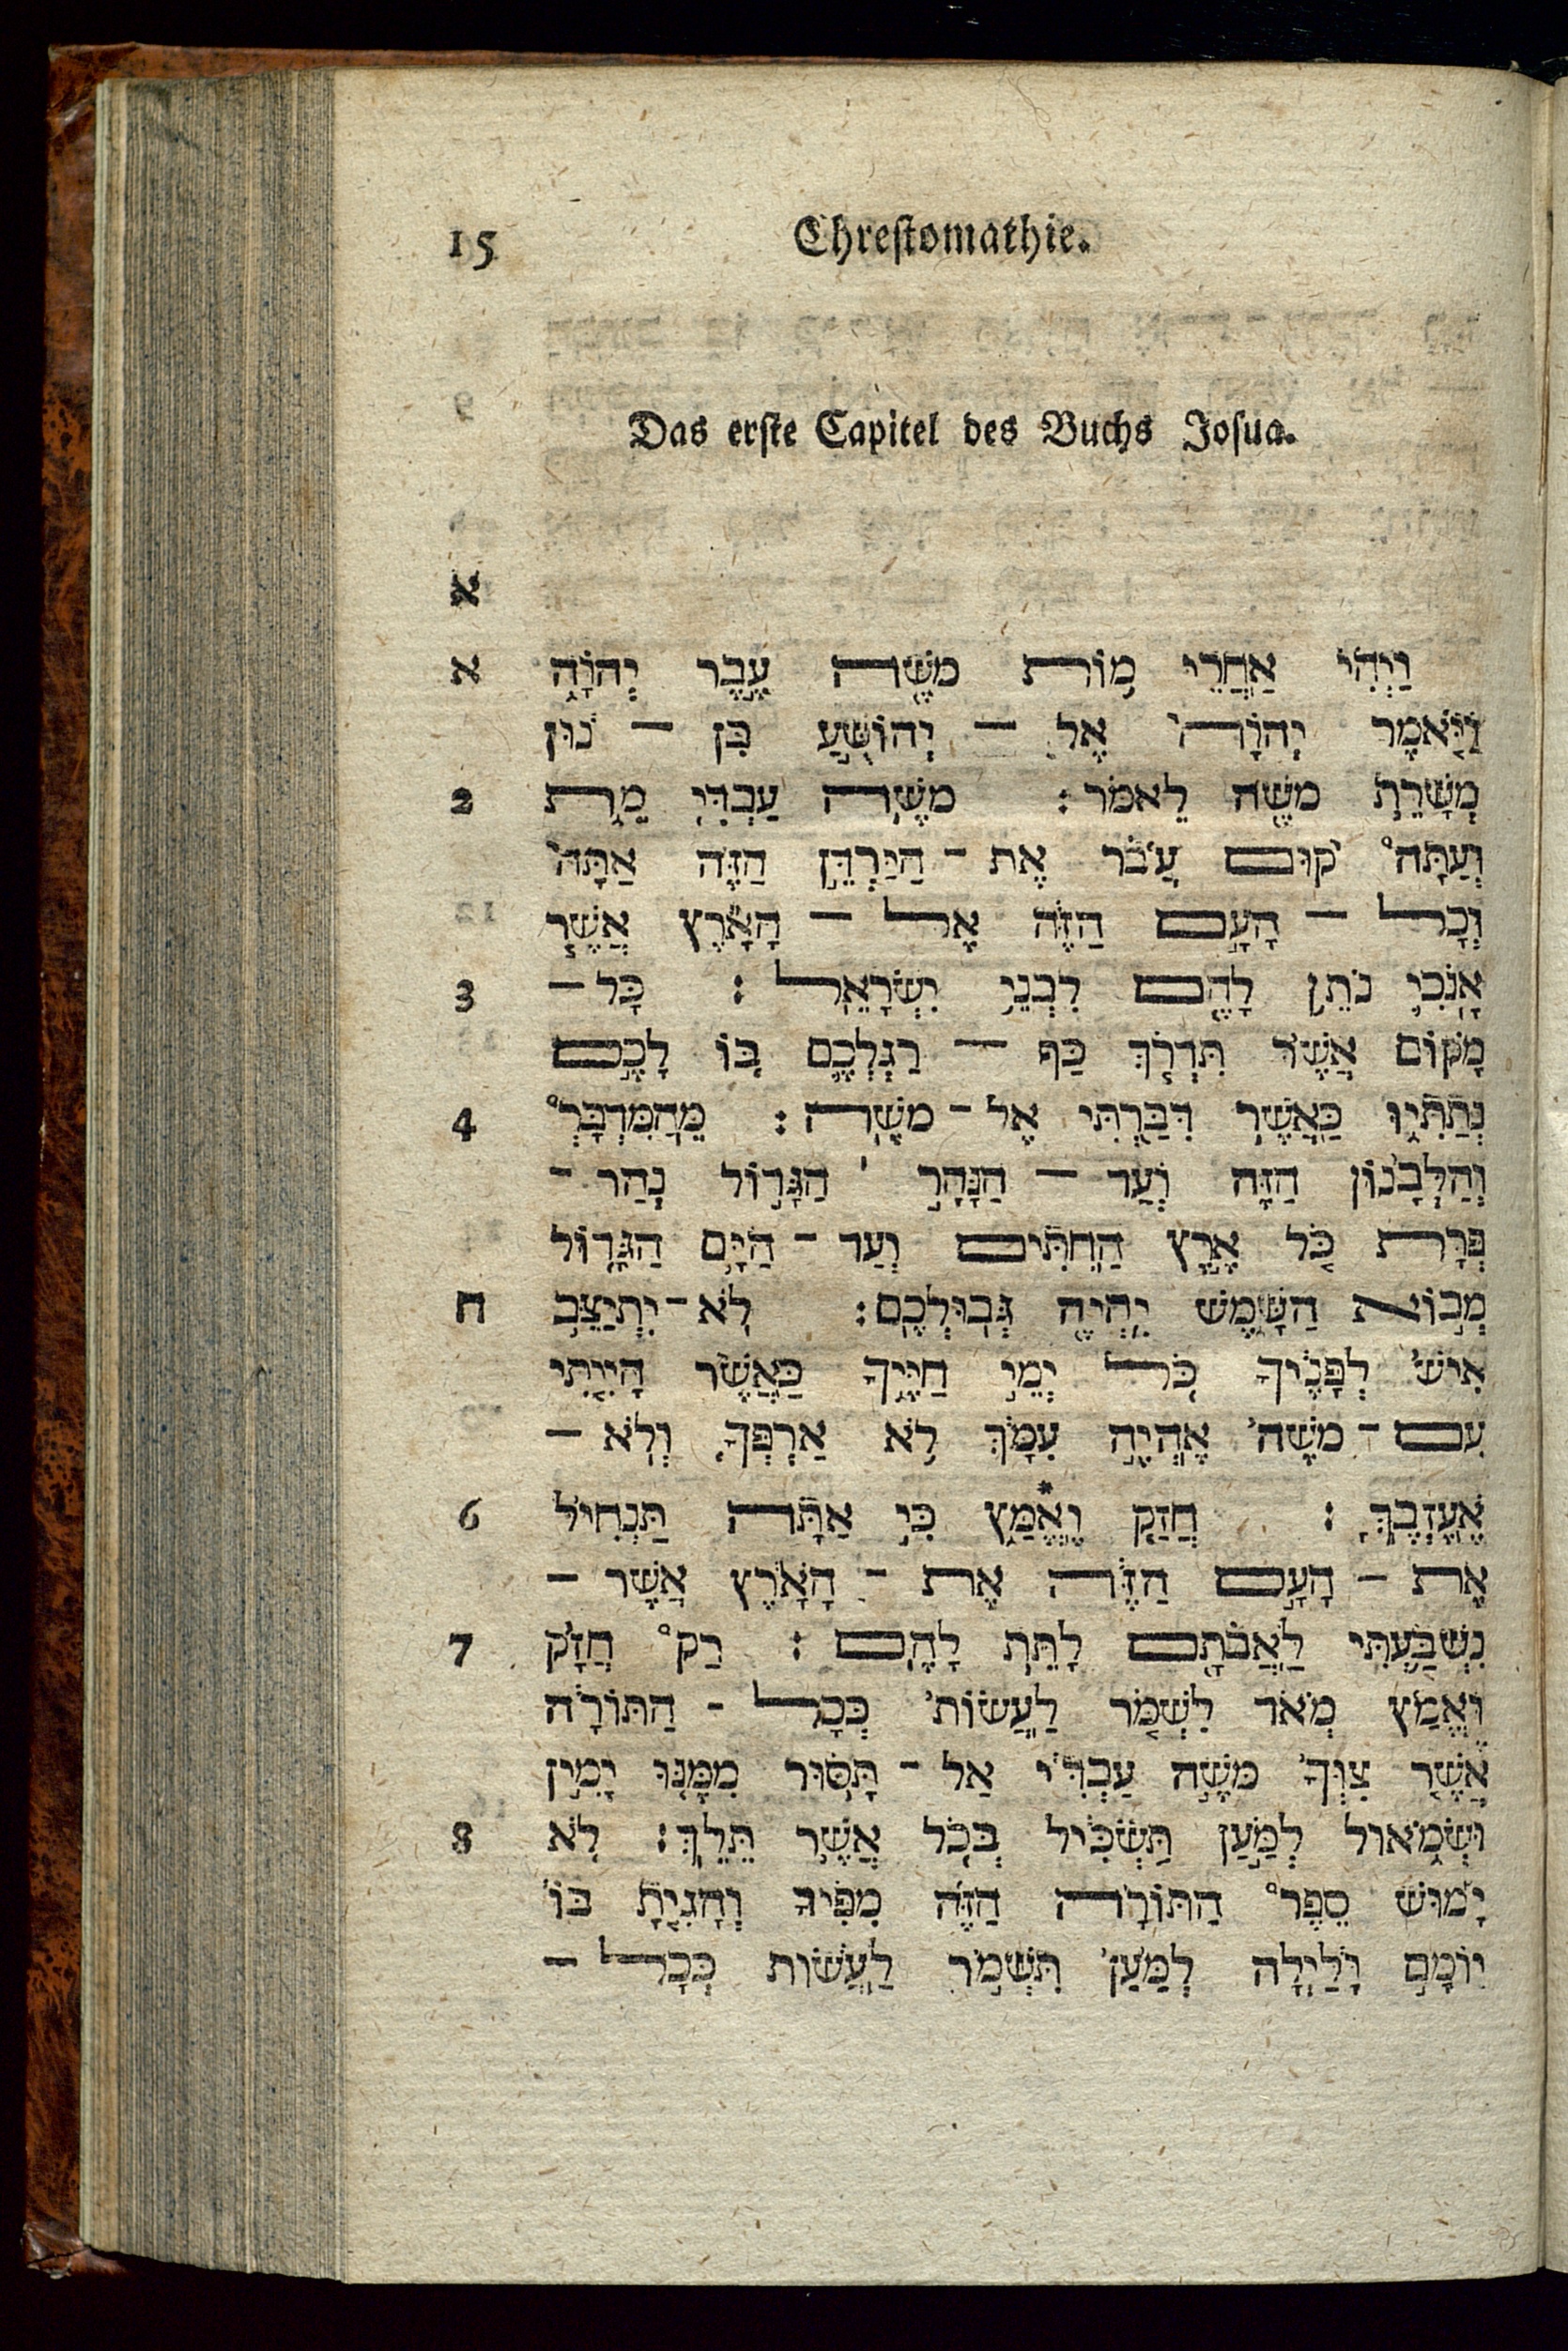 15 Chrestomathie.
Das erste Capitel des Buchs Josua.
א
א וַיְהִי אַחֲרֵי מוֹת משֶׁה עֶבֶד יְהוָֹה
וַיֹּאמֶר יְהוָֹה אֶל – יְהוֹשֻׁעַ בִּן – נוּן
2 מְשָׁרֵת משֶׁה לֵאמֹר : משֶׁה עַבְדִּי מֵת
וְעַתָּה קוּם עֲבֹר אֶת - הַיַּרְדֵּן הַזֶּה אַתָּה
וְכָל – הָעָם הַזֶּה אֶל – הָאָרֶץ אֲשֶׁר
3 אָנֹכִי נֹתֵן לָהֶם לִבְנֵי יִשְׂרָאֵל : כָּל –
מָקוֹם אֲשֶׁר תִּדְרֹךְ כַּף – רַגְלְכֶם בּוֹ לָכֶם
4 נְתַתִּיו כַּאֲשֶׁר דִּבַּרְתִּי אֶל - משֶׁה : מֵהַמִּדְבָּר
וְהַלְּבָנוֹן הַזֶּה וְעַד – הַנָּהָר הַגָּדוֹל נְהַר -
פְּרָת כֹּל אֶרֶץ הַחִתִּים וְעַד - הַיָּם הַגָּדוֹל
ה מְבוֹא הַשָּׁמֶשׁ יִהְיֶה גְּבוּלְכֶם : לֹא - יִתְיַצֵּב
אִישׁ לְפָנֶיךָ כֹּל יְמֵי חַיֶּיךָ כַּאֲשֶׁר הָיִיתִי
עִם - משֶׁה אֶהְיֶה עִמָּךְ לֹא אַרְפְּךָ וְלֹא –
6 אֶעֶזְבֶךָּ : חֲזַק וֶאֱמָץ כִּי אַתָּה תַּנְחִיל
אֶת - הָעָם הַזֶּה אֶת - הָאָרֶץ אֲשֶׁר –
7 נִשְׁבַּעְתִּי לַאֲבֹתָם לָתֵת לָהֶם : רַק חֲזַק
וֶאֱמַץ מְאֹד לִשְׁמֹר לַעֲשׂוֹת כְּכָל - הַתּוֹרָה
אֲשֶׁר צִוְּךָ משֶׁה עַבְדִּי אַל - תָּסוּר מִמֶּנּוּ יָמִין
8 וּשְׂמֹאול לְמַעַן תַּשְׂכִּיל בְּכֹל אֲשֶׁר תֵּלֵךְ : לֹא
יָמוּשׁ סֵפֶר הַתּוֹרָה הַזֶּה מִפִּיךָ וְהָגִיתָ בּוֹ
יוֹמָם וָלַיְלָה לְמַעַן תִּשְׁמֹר לַעֲשׂוֹת כְּכָל –